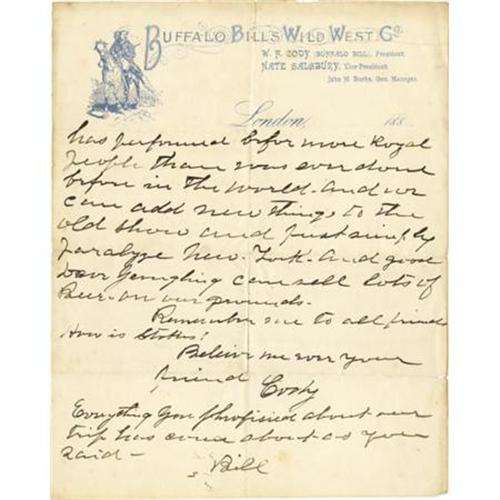 BUFFALO BILL'S WILD WEST. Co.
W. F. CODY (BUFFALO BILL), President.
NATE SALSBURY, Vice-President.
John M. Burke, Gen. Manager.
London, 188
has performed befor more Royal
people than was ever done
before in the world. And we
can add new things to the
old show and just simply
paralyze New. York. And good
Dear can sell lots of
Beer. on our grounds.
Remember me to all friends
How is Stokes!
Believe me ever your
friend Cody
Everything you prophisied about our
trip has come about as you
said—
Bill